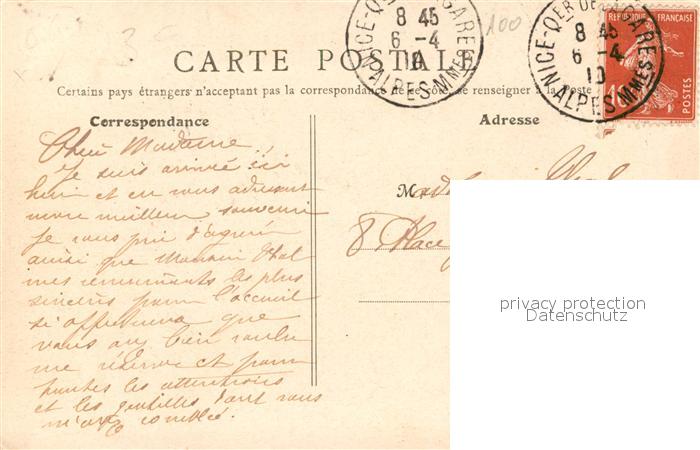 NICE-QER DE LA GARE
8 45
6 -4
10
ALPES MMES
100
NICE-QER DE LA GARE
8 45
6 -4
10
ALPES MMES
REPUBLIQUE FRANCAISE
10
POSTES
CARTE POSTALE
Certains pays étrangers n'acceptant pas la correspondance de ce côté, se renseigner à la Poste
Correspondance
Adresse
Chère Madame
Je suis arrivé ici
hier et en vous adressant
mon meilleur souvenir
je vous prie d'agréer
ainsi que Monsieur
mes remerciments les plus
sincères pour l'accueil
si affectueux que
vous avez bien voulu
me réserver et pour
toutes les attentions
et les gentilles dont vous
m'avez comblé.
M
8 Place
privacy protection
Datenschutz